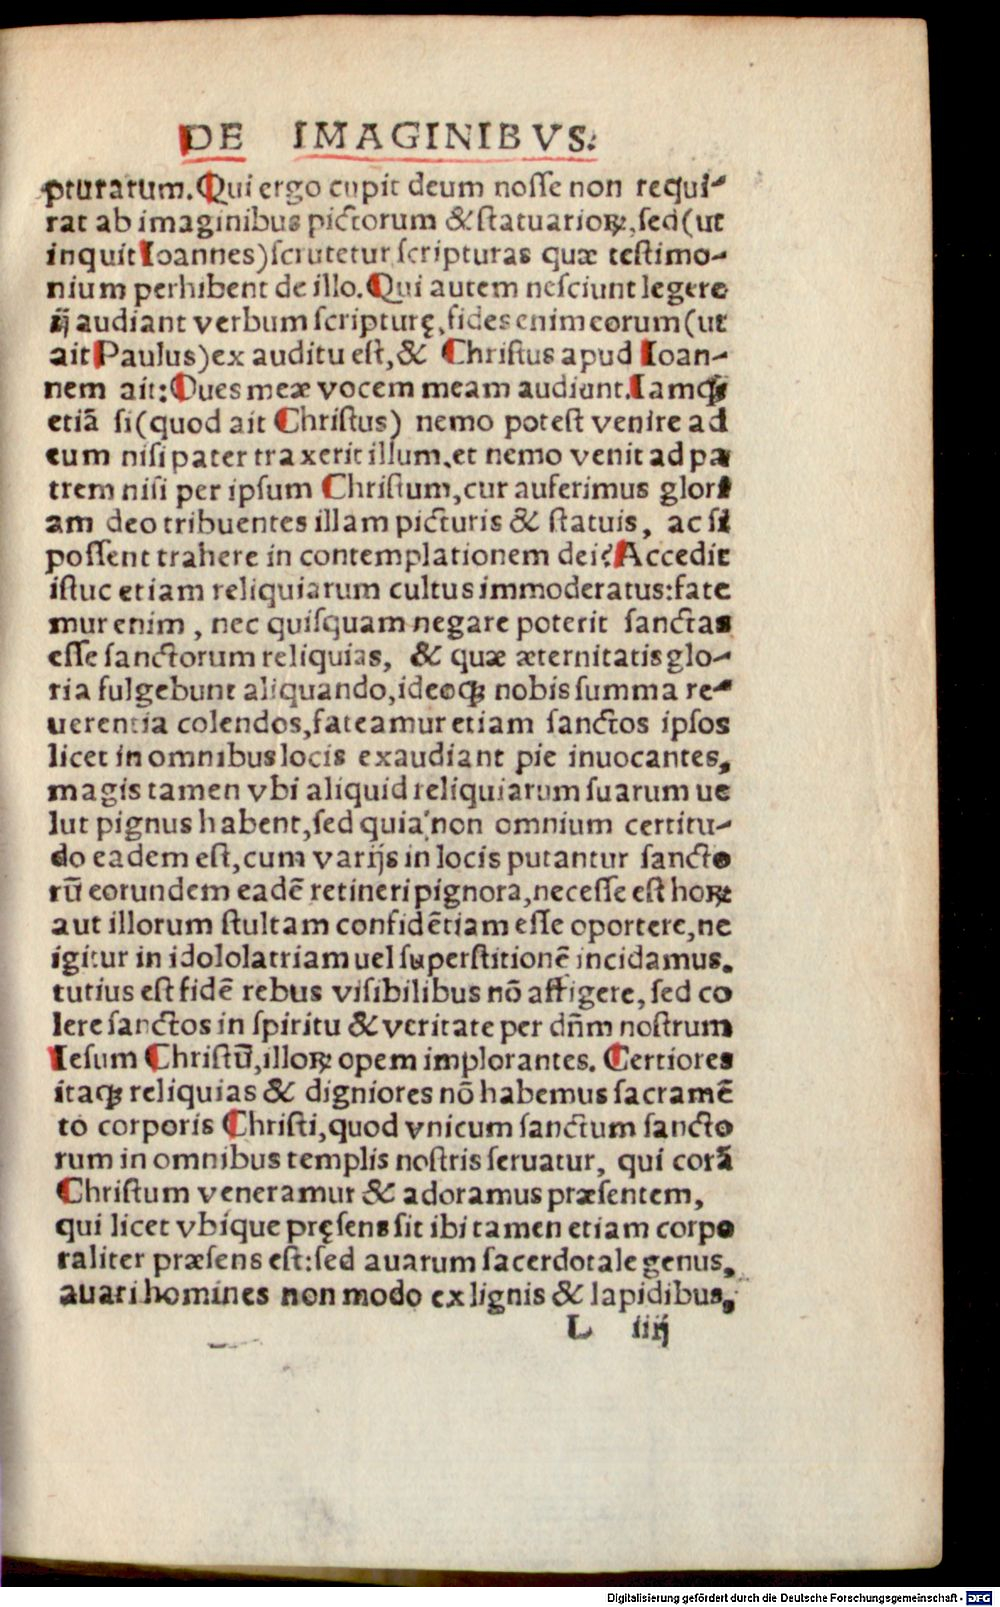 DE IMAGINIBVS.
pturarum. Qui ergo cupit deum nosse non requi-
rat ab imaginibus pictorum & statuarioꝝ, sed (ut
inquit Ioannes) scrutetur scripturas quæ testimo-
nium perhibent de illo. Qui autem nesciunt legere
ij audiant verbum scripturę, fides enim eorum (ut
ait Paulus) ex auditu est, & Christus apud Ioan-
nem ait: Oues meæ vocem meam audiunt. Iamqꝫ
etiā si (quod ait Christus) nemo potest venire ad
eum nisi pater traxerit illum, et nemo venit ad pa
trem nisi per ipsum Christum, cur auferimus glori
am deo tribuentes illam picturis & statuis, ac si
possent trahere in contemplationem dei? Accedit
istuc etiam reliquiarum cultus immoderatus: fate
mur enim, nec quisquam negare poterit sanctas
esse sanctorum reliquias, & quæ æternitatis glo-
ria fulgebunt aliquando, ideoqꝫ nobis summa re-
uerentia colendos, fateamur etiam sanctos ipsos
licet in omnibus locis exaudiant pie inuocantes,
magis tamen vbi aliquid reliquiarum suarum ue
lut pignus habent, sed quia non omnium certitu-
do eadem est, cum varijs in locis putantur sancto
rū eorundem eadē retineri pignora, necesse est hoꝝ
aut illorum stultam confidētiam esse oportere, ne
igitur in idololatriam uel superstitionē incidamus.
tutius est fidē rebus visibilibus nō affigere, sed co
lere sanctos in spiritu & veritate per dn̄m nostrum
Iesum Christū, illoꝝ opem implorantes. Certiores
itaqꝫ reliquias & digniores nō habemus sacramē
to corporis Christi, quod vnicum sanctum sancto
rum in omnibus templis nostris seruatur, qui corā
Christum veneramur & adoramus præsentem,
qui licet vbique pręsens sit ibi tamen etiam corpo
raliter præsens est: sed auarum sacerdotale genus,
auari homines non modo ex lignis & lapidibus,
L iiij
Digitalisierung gefördert durch die Deutsche Forschungsgemeinschaft - DFG